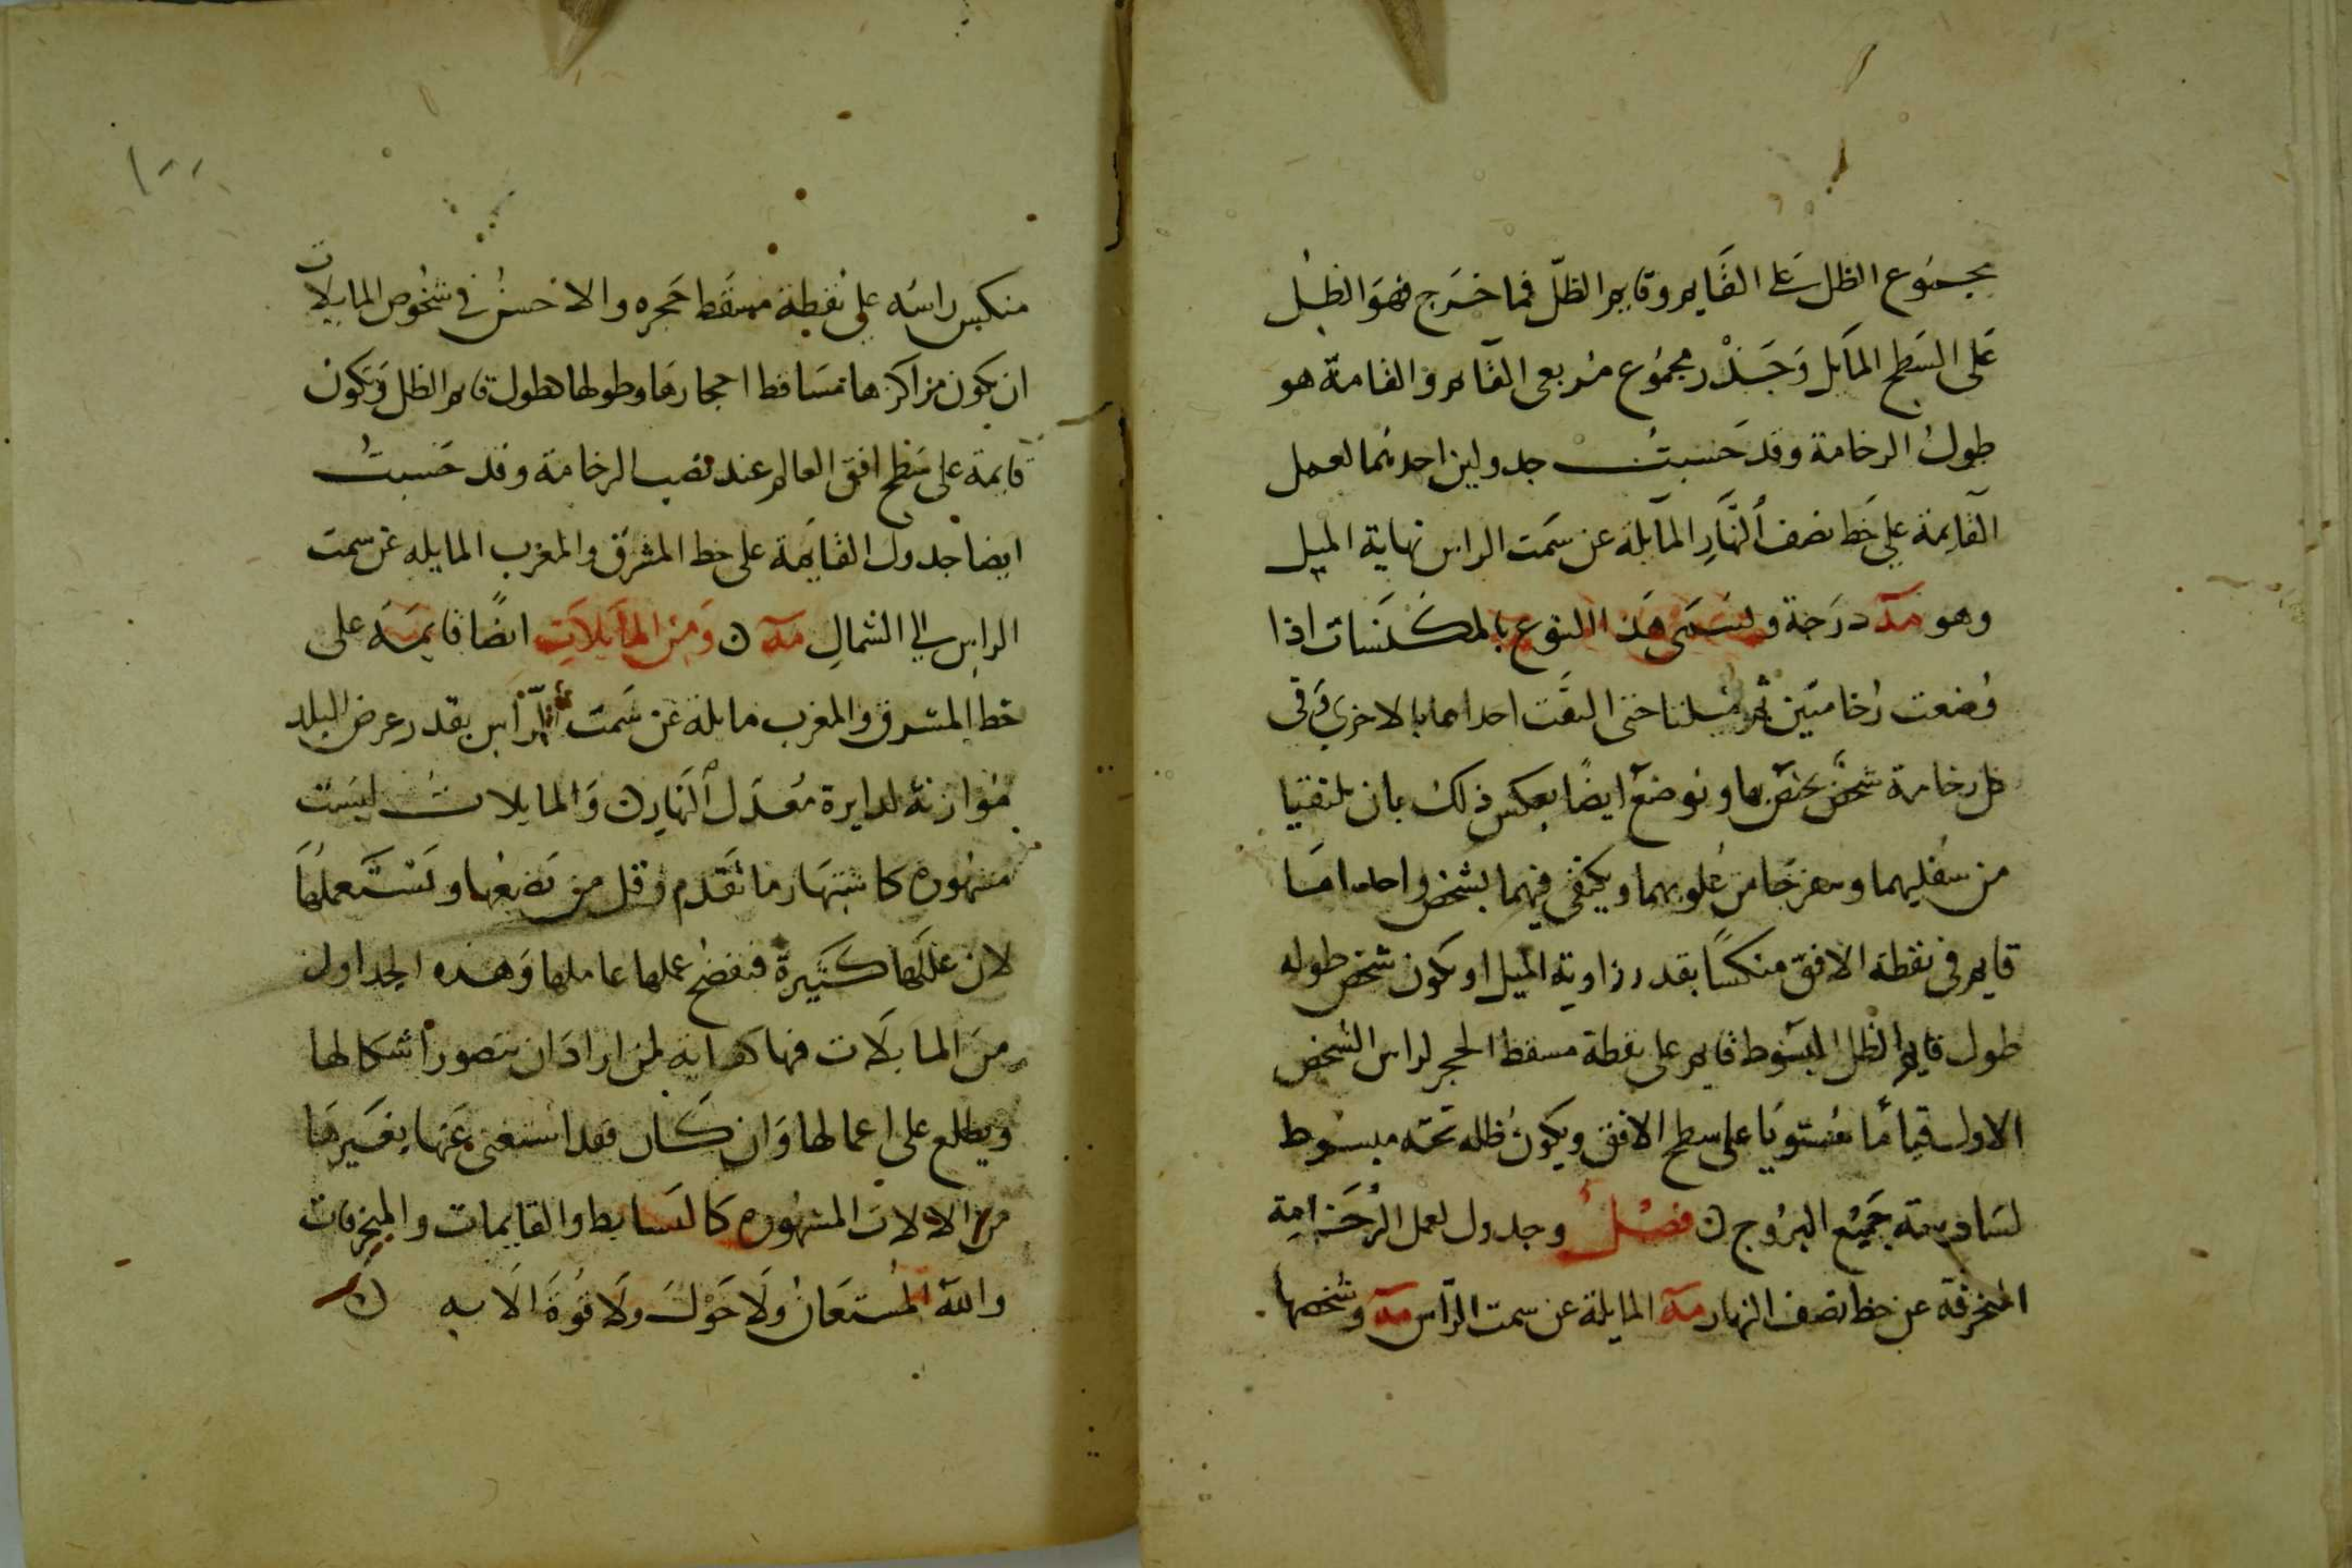 مجموع الظل على القايم وقايم الظل فما خرج فهو الظل
على السطح المايل وجذر مجموع مربعي القايم والقامة هو
طول الرخامة وقد حسبت جدولين احدهما لعمل
القايمة على خط نصف النهار المايلة عن سمت الراس نهاية الميل
وهو مه درجة وتسمى هذا النوع بالمكنسات اذا
وضعت رخامتين ثم ميلتا حتى التقت احداهما بالاخرى وفي
كل رخامة شخص يختص بها وتوضع ايضا بعكس ذلك بان يلتقيا
من سفليهما وينفرجا من علويهما ويكتفى فيهما بشخص واحد اما
قايم في نقطة الافق منكسا بقدر زاوية الميل او يكون شخص طوله
طول قايم الظل المبسوط قايم على نقطة مسقط الحجر لراس الشخص
الاول قياما مستويا على سطح الافق ويكون ظله تحته مبسوط
لسا جميع البروج ن فصل وجدول لعمل الرخامة
المنحرفة عن خط نصف النهار مه المايلة عن سمت الراس مه وشخصها
١٠٠
منكس راسه على نقطة مسقط حجره والاحسن في شخوص المايلات
ان يكون مراكزها مساقط احجارها وطولها طول قايم الظل وتكون
قايمة على سطح افق العالم عند نصب الرخامة وقد حسبت
ايضا جدول القايمة على خط المشرق والمغرب المايله عن سمت
الراس الي الشمال مه ن ومن المايلات ايضا قايمة على
خط المشرق والمغرب مايلة عن سمت الراس بقدر عرض البلد
موازنة لدايرة معدل النهار ن والمايلات ليست
مشهوره كاشتهار ما تقدم وقل من يضعها ويستعملها
لان عللها كثيرة فتفضح عملها عاملها وهذه الجداول
من المايلات فيها كفاية لمن اراد ان يتصور اشكالها
ويطلع على اعمالها وان كان فقد استغنى عنها بغيرها
من الالات المشهوره كالبسايط والقايمات والمنحرفات
والله المستعان ولا حول ولا قوة الا به ن